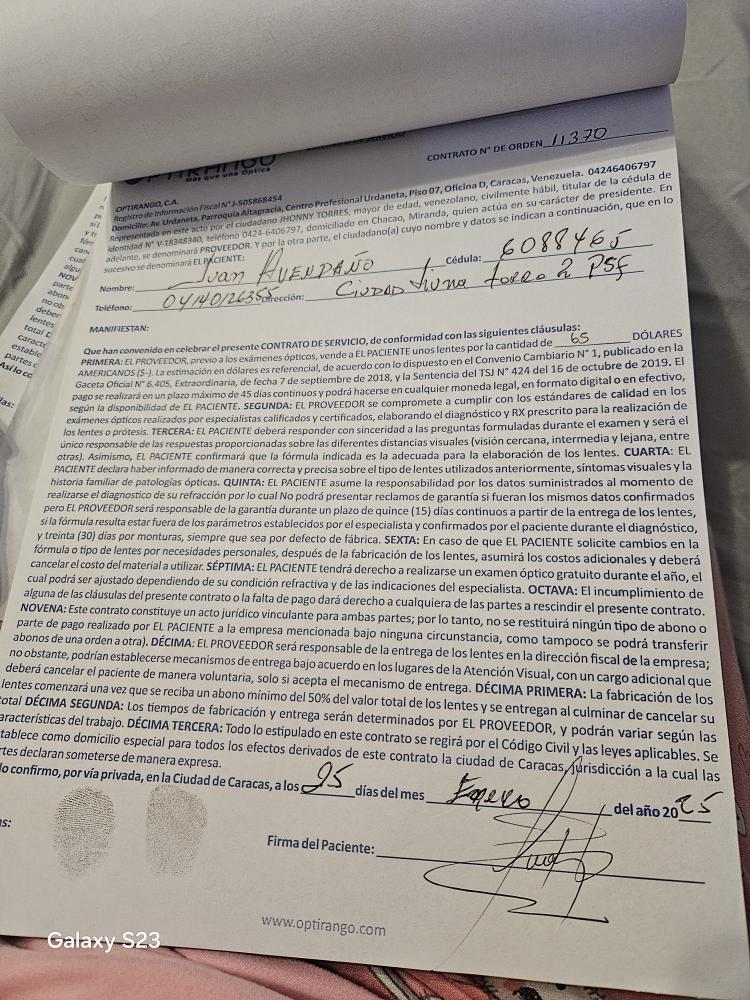 OPTIRANGO
Más que una Óptica
CONTRATO N° DE ORDEN 11370
OPTIRANGO, C.A.
Registro de Información Fiscal N° J-505868454
Domicilio: Av. Urdaneta, Parroquia Altagracia, Centro Profesional Urdaneta, Piso 07, Oficina D, Caracas, Venezuela. 04246406797
Representada en este acto por el ciudadano JHONNY TORRES, mayor de edad, venezolano, civilmente hábil, titular de la cédula de
identidad N° V-18348340, teléfono 0424-6406797, domiciliado en Chacao, Miranda, quien actúa en su carácter de presidente. En
adelante, se denominará PROVEEDOR. Y por la otra parte, el ciudadano(a) cuyo nombre y datos se indican a continuación, que en lo
sucesivo se denominará EL PACIENTE:
Nombre: Juan AVENDAÑO Cédula: 6088465
Teléfono: 04140126355 Dirección: CIUDAD tiuna torre 2 PSF
MANIFIESTAN:
Que han convenido en celebrar el presente CONTRATO DE SERVICIO, de conformidad con las siguientes cláusulas:
PRIMERA: EL PROVEEDOR, previo a los exámenes ópticos, vende a EL PACIENTE unos lentes por la cantidad de 65 DÓLARES
AMERICANOS ($-). La estimación en dólares es referencial, de acuerdo con lo dispuesto en el Convenio Cambiario N° 1, publicado en la
Gaceta Oficial N° 6.405, Extraordinaria, de fecha 7 de septiembre de 2018, y la Sentencia del TSJ N° 424 del 16 de octubre de 2019. El
pago se realizará en un plazo máximo de 45 días continuos y podrá hacerse en cualquier moneda legal, en formato digital o en efectivo,
según la disponibilidad de EL PACIENTE. SEGUNDA: EL PROVEEDOR se compromete a cumplir con los estándares de calidad en los
exámenes ópticos realizados por especialistas calificados y certificados, elaborando el diagnóstico y RX prescrito para la realización de
los lentes o prótesis. TERCERA: EL PACIENTE deberá responder con sinceridad a las preguntas formuladas durante el examen y será el
único responsable de las respuestas proporcionadas sobre las diferentes distancias visuales (visión cercana, intermedia y lejana, entre
otras). Asimismo, EL PACIENTE confirmará que la fórmula indicada es la adecuada para la elaboración de los lentes. CUARTA: EL
PACIENTE declara haber informado de manera correcta y precisa sobre el tipo de lentes utilizados anteriormente, síntomas visuales y la
historia familiar de patologías ópticas. QUINTA: EL PACIENTE asume la responsabilidad por los datos suministrados al momento de
realizarse el diagnostico de su refracción por lo cual No podrá presentar reclamos de garantía si fueran los mismos datos confirmados
pero EL PROVEEDOR será responsable de la garantía durante un plazo de quince (15) días continuos a partir de la entrega de los lentes,
si la fórmula resulta estar fuera de los parámetros establecidos por el especialista y confirmados por el paciente durante el diagnóstico,
y treinta (30) días por monturas, siempre que sea por defecto de fábrica. SEXTA: En caso de que EL PACIENTE solicite cambios en la
fórmula o tipo de lentes por necesidades personales, después de la fabricación de los lentes, asumirá los costos adicionales y deberá
cancelar el costo del material a utilizar. SÉPTIMA: EL PACIENTE tendrá derecho a realizarse un examen óptico gratuito durante el año, el
cual podrá ser ajustado dependiendo de su condición refractiva y de las indicaciones del especialista. OCTAVA: El incumplimiento de
alguna de las cláusulas del presente contrato o la falta de pago dará derecho a cualquiera de las partes a rescindir el presente contrato.
NOVENA: Este contrato constituye un acto jurídico vinculante para ambas partes; por lo tanto, no se restituirá ningún tipo de abono o
parte de pago realizado por EL PACIENTE a la empresa mencionada bajo ninguna circunstancia, como tampoco se podrá transferir
abonos de una orden a otra). DÉCIMA: EL PROVEEDOR será responsable de la entrega de los lentes en la dirección fiscal de la empresa;
no obstante, podrían establecerse mecanismos de entrega bajo acuerdo en los lugares de la Atención Visual, con un cargo adicional que
deberá cancelar el paciente de manera voluntaria, solo si acepta el mecanismo de entrega. DÉCIMA PRIMERA: La fabricación de los
lentes comenzará una vez que se reciba un abono mínimo del 50% del valor total de los lentes y se entregan al culminar de cancelar su
total DÉCIMA SEGUNDA: Los tiempos de fabricación y entrega serán determinados por EL PROVEEDOR, y podrán variar según las
características del trabajo. DÉCIMA TERCERA: Todo lo estipulado en este contrato se regirá por el Código Civil y las leyes aplicables. Se
tablece como domicilio especial para todos los efectos derivados de este contrato la ciudad de Caracas, jurisdicción a la cual las
rtes declaran someterse de manera expresa.
lo confirmo, por vía privada, en la Ciudad de Caracas, a los 25 días del mes Enero del año 2025
as:
Firma del Paciente:
www.optirango.com
Galaxy S23